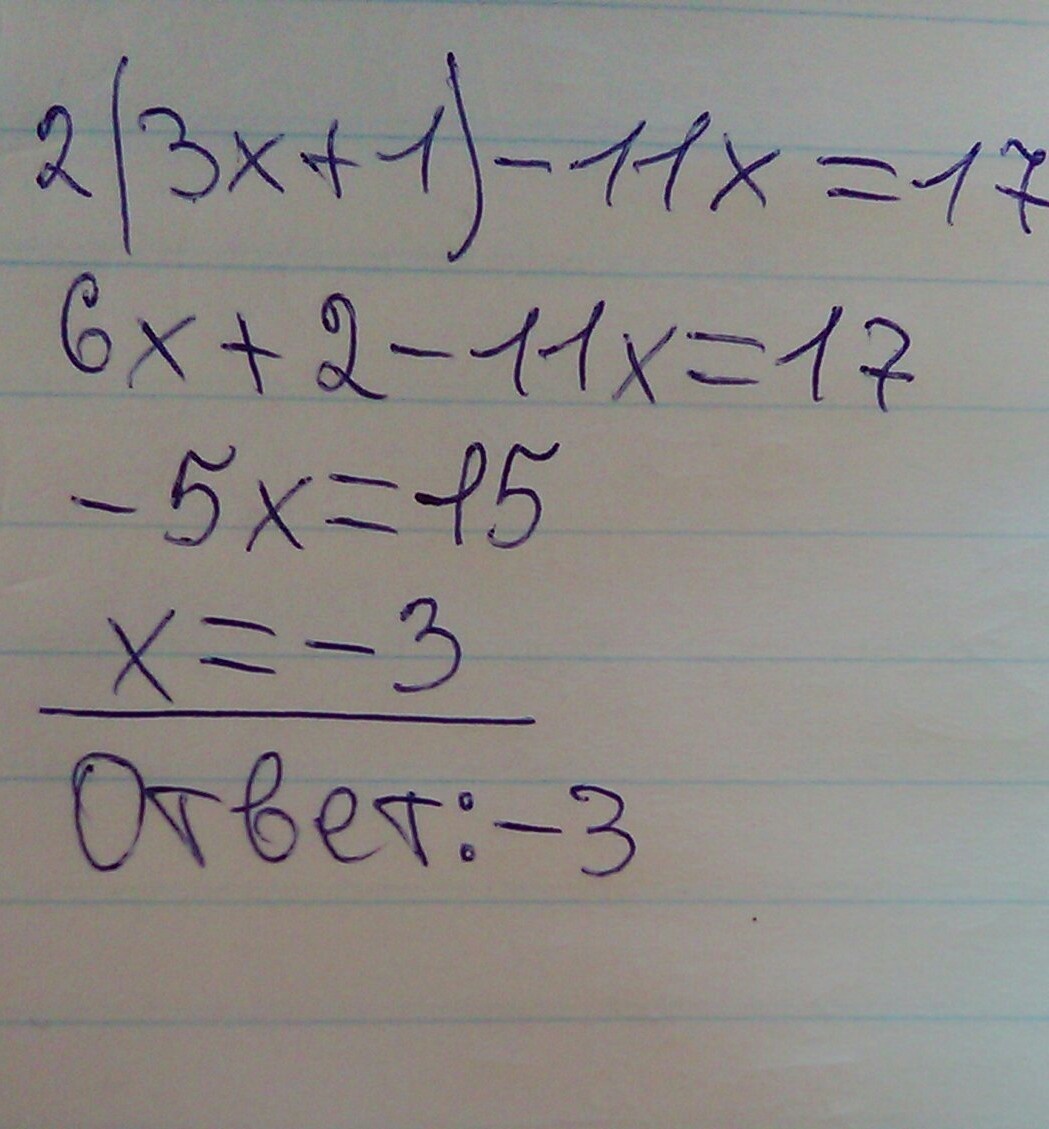 2(3x+1)-11x=17
6x+2-11x=17
-5x=15
x=-3
Ответ:-3